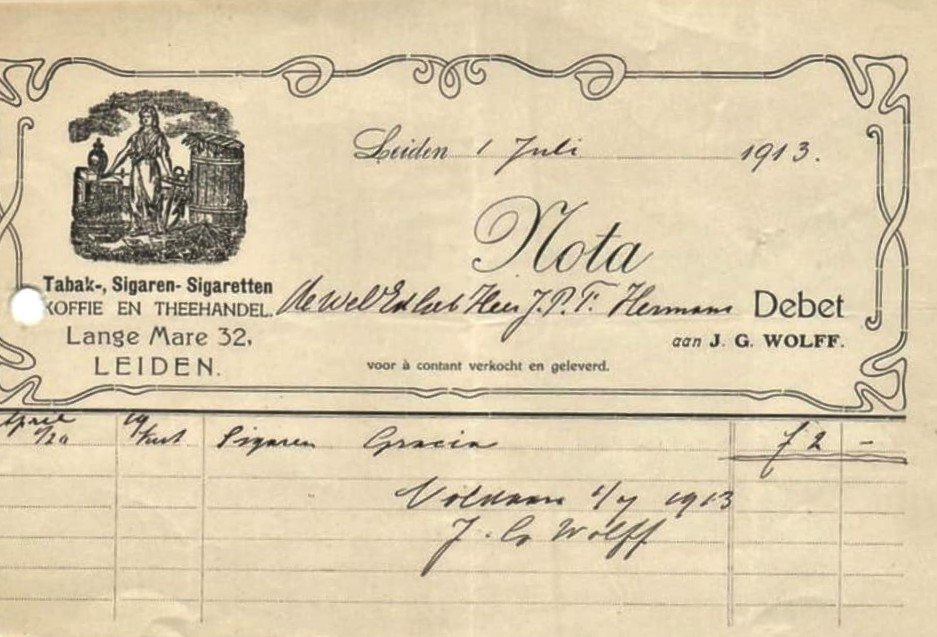 Leiden 1 Juli 1913.
Nota
Tabak-, Sigaren- Sigaretten
KOFFIE EN THEEHANDEL.
Lange Mare 32,
LEIDEN.
de Heer J. P. F. Hermans Debet
aan J. G. WOLFF.
voor à contant verkocht en geleverd.
April Sigaren Gracia f 2 -
Voldaan 1/7 1913
J. G. Wolff